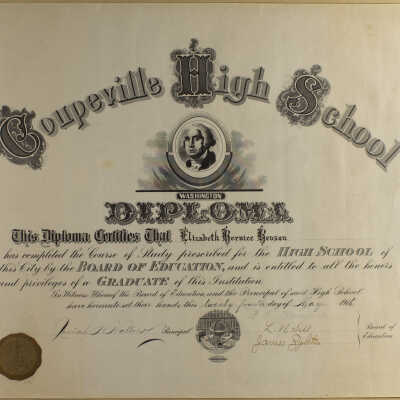 Coupeville High School
WASHINGTON
DIPLOMA
This Diploma Certifies That Elizabeth Bernice
has completed the Course of Study prescribed for the HIGH SCHOOL of
this City by the BOARD OF EDUCATION, and is entitled to all the honors
and privileges of a GRADUATE of this Institution.
In Witness Whereof the Board of Education and the Principal of said High School
have hereunto set their hands this twenty fourth day of May
Principal
Board of
Education
James